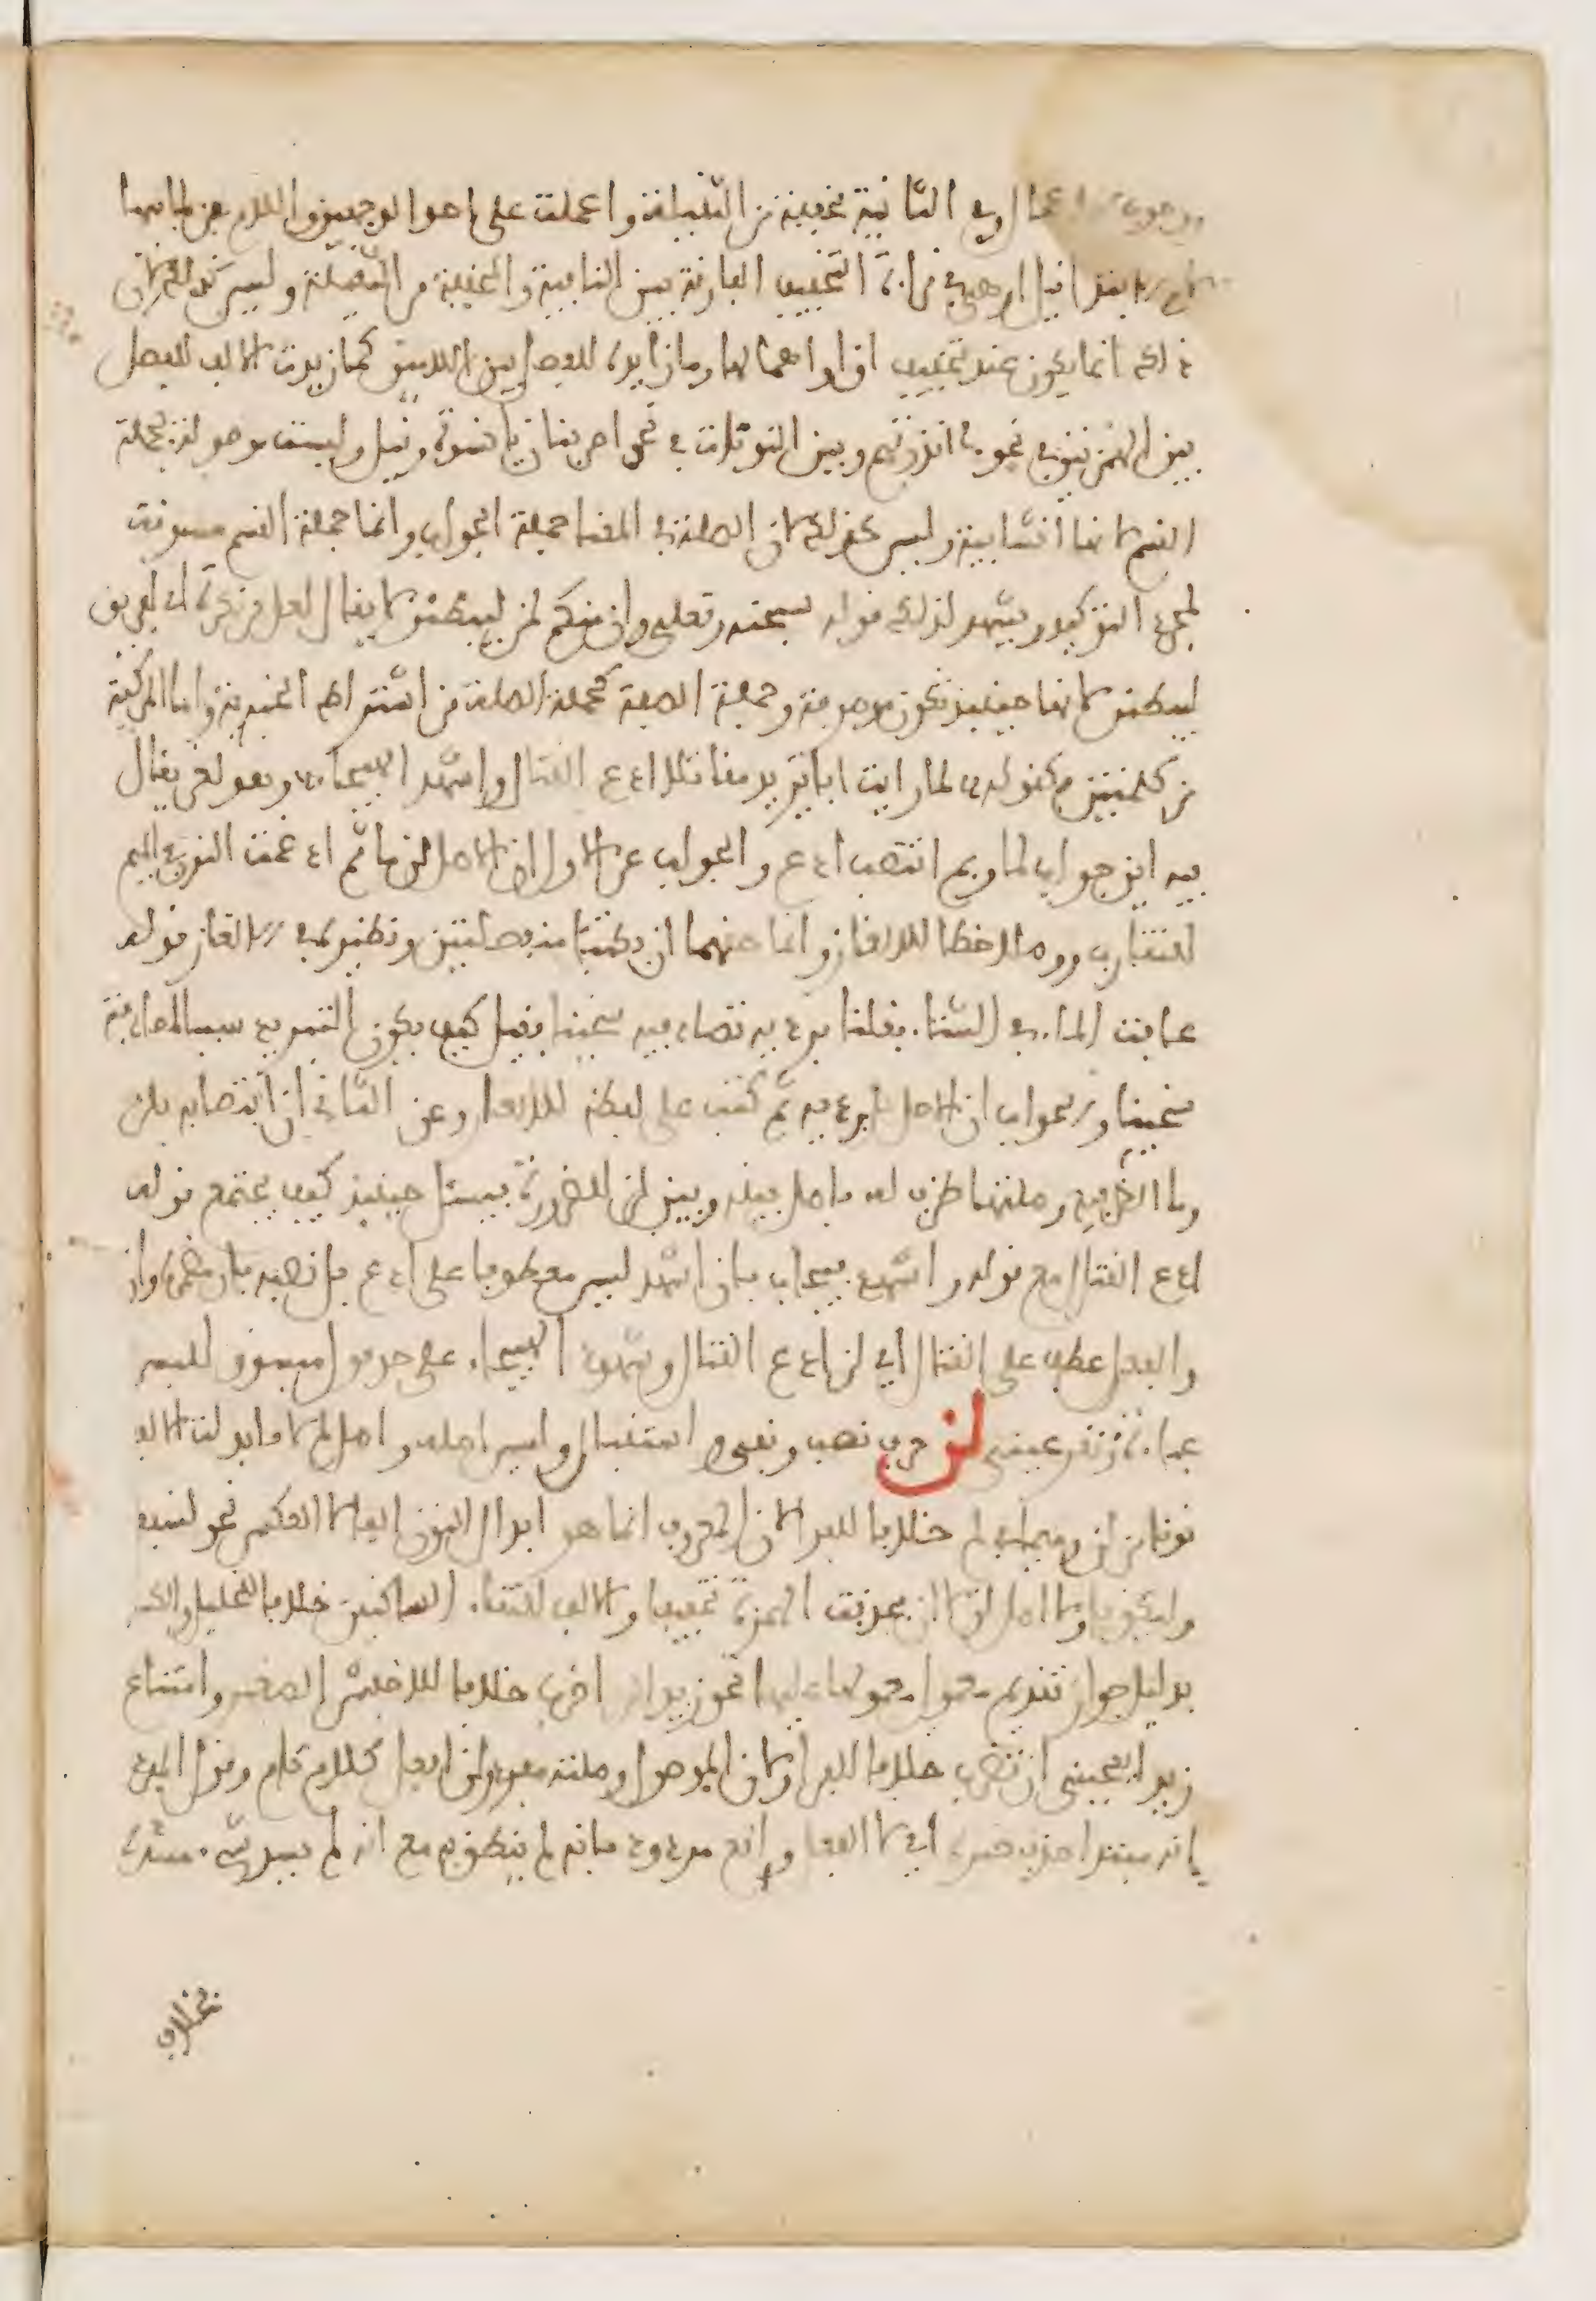 اعمال وفي الثانية مخففة من الثقيلة واعملت على احد الوجهين واللام من لما فيهما
الابتداء قيل او هي في قراءة التخفيف الفارقة بين النافية والمخففة من الثقيلة وليس كذلك لان
ذلك انما يكون عند تخفيف ان واهمالها وما زايدة للفصل بين اللامين كما زيدت الالف للفصل
بين الهمزتين في نحو ءانذرتهم وبين النونات في نحو اضربنان يا نسوة وقيل وليست موصولة بجملة
القسم لانها انشايية وليس كذلك لان الصلة في المعنا جملة الجواب وانما جملة القسم مسوقة
لمجرد التوكيد ويشهد لذلك قوله سبحنه وتعلى وان منكم لمن ليبطئن لا يقال لعل من نكرة اي لفريق
ليبطئن لانها حينيذ تكون موصوفة وجملة الصفة كجملة الصلة في اشتراط الخبرية واما المركبة
من كلمتين فكقوله لما رايت ابا يزيد مقاتلا ادع القتال واشهد الهيجاء وهو لغز يقال
فيه اين جواب لما وبم انتصب ادع والجواب عن الاول ان الاصل لن ما ثم ادغمت النون في الميم
للتقارب ووصلا خطا للالغاز وانما حقهما ان يكتبا منفصلتين ونظيره في الالغاز قوله
عافت الماء في الشتاء فقلنا برديه تصادفيه سخينا فيقل كيف يكون التبريد سببا لمصادفته
سخينا والجواب ان الاصل بل رديه ثم كتب على لفظه للالغاز وعن الثاني ان انتصابه بلن
وما الظرفية وصلتها ظرف له فاصل بينه وبين لن للضرورة فيسئل حينيذ كيف يجتمع قوله
ادع القتال مع قوله واشهد فيجاب بان اشهد ليس معطوفا على ادع بل نصبه بان مضمرة وان
والفعل عطف على القتال اي لن ادع القتال وشهود الهيجاء على حد قول ميسون للبس
عباءة وتقر عيني لن حرف نصب ونفي واستقبال وليس اصله واصل لم لا فابدلت الالف
نونا في لن وميما في لم خلافا للفرا لان المعروف انما هو ابدال النون الفا لا العكس نحو لنسفعا
وليكونا ولا اصل لن لا ان فحذفت الهمزة تخفيفا والالف للتقاء الساكنين خلافا للخليل والك
بدليل جواز تقديم معمول معمولها عليها نحو زيدا لن اضرب خلافا للاخفش الصغير وامتناع
زيدا يعجبني ان تضرب خلافا للفرا ولان الموصول وصلته مفرد ولن افعل كلام تام وقول المبرد
انه مبتدا حذف خبره اي لا الفعل واقع مردود بانه لم ينطق به مع انه لم يسد شيء مسده
بخلاف